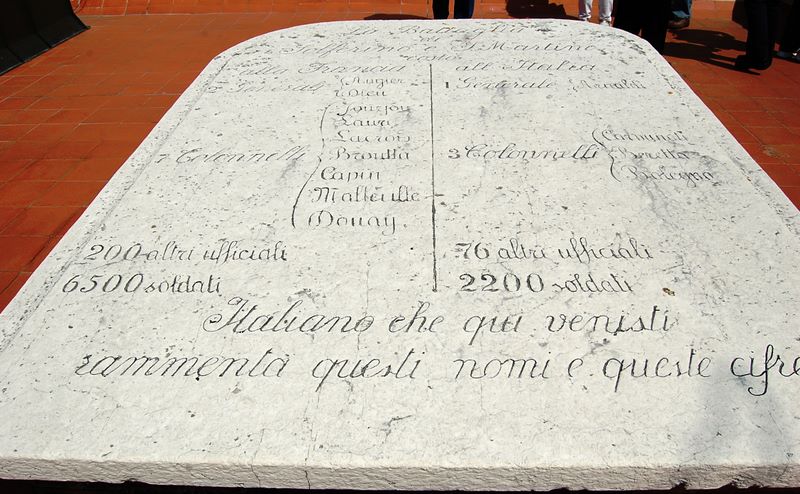 La Battaglia
di
Solferino e S. Martino
costò
alla Francia all'Italia
2 Generali Augier 1 Generale Arnaldi
Dieu
7 Colonnelli Broutta 3 Colonnelli Beretta
Lacroix
Capin
Malleville
Douay
Bologna
200 altri ufficiali 76 altri ufficiali
6500 soldati 2200 soldati
Italiano che qui venisti
rammenta questi nomi e queste cifre